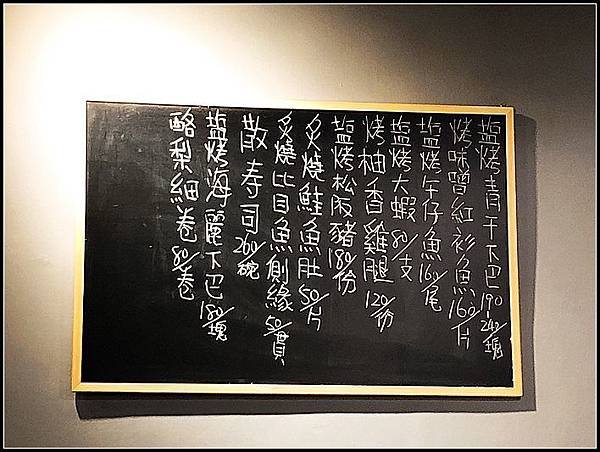 塩烤青干下巴190~240/塊
烤味噌紅衫魚160/片
塩烤午仔魚160/尾
塩烤大蝦80/支
烤柚香雞腿120/份
塩烤松阪豬180/份
炙燒鮭魚肚50/片
炙燒比目魚側緣50/貫
散寿司260/碗
塩烤海鱺下巴180/塊
酪梨細卷80/卷